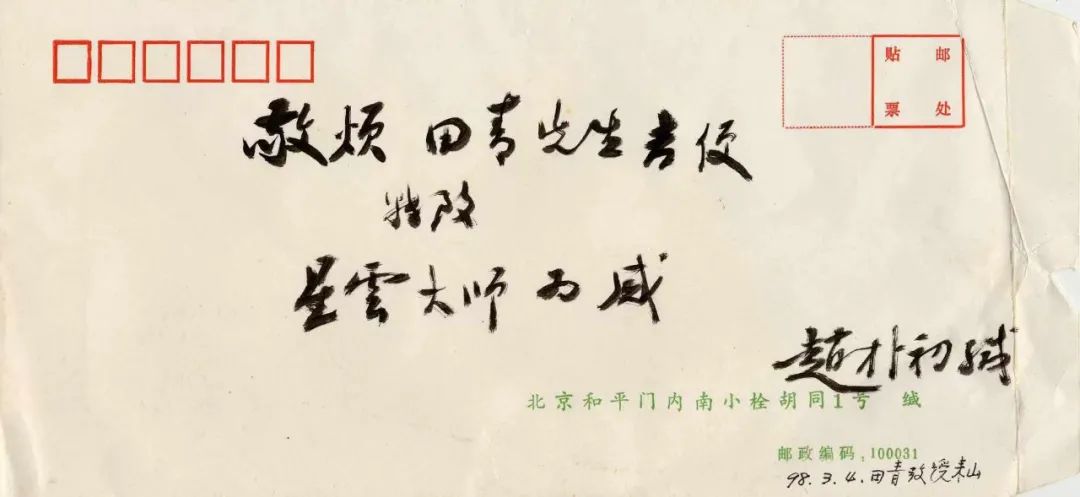 贴 邮
票 处
敬烦 田青先生吉便
转致
星雲大师 为感
趙朴初缄
北京和平门内南小栓胡同1号 缄
邮政编码:100031
98.3.4.田青教授来山